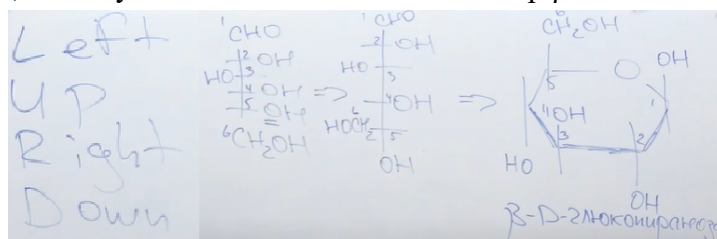 Left
Up
Right
Down
¹CHO
2 OH
HO 3
4 OH
5 OH
⁶CH₂OH
⇒
¹CHO
2 OH
HO 3
4 OH
HOCH₂ 6 5
OH
⇒
⁶CH₂OH
5 O OH
4 OH 1
3 2
HO
OH
β-D-глюкопираноз